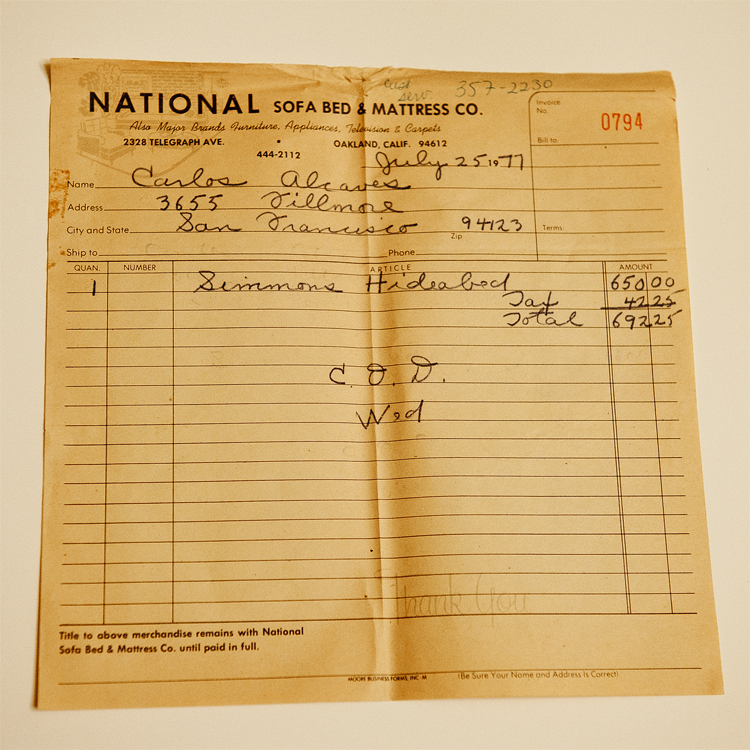 cust serv 357-2230
NATIONAL SOFA BED & MATTRESS CO.
Also Major Brands Furniture, Appliances, Television & Carpets
2328 TELEGRAPH AVE. • OAKLAND, CALIF. 94612
444-2112
Invoice No. 0794
Bill to:
July 25 1977
Name Carlos Alcaves
Address 3655 Fillmore
City and State San Francisco Zip 94123
Terms:
Ship to Phone
QUAN. NUMBER ARTICLE AMOUNT
1 Simmons Hideabed 650 00
Tax 42 25
Total 692 25
C.O.D.
Wed
Thank You
Title to above merchandise remains with National
Sofa Bed & Mattress Co. until paid in full.
MOORE BUSINESS FORMS, INC. M (Be Sure Your Name and Address Is Correct)